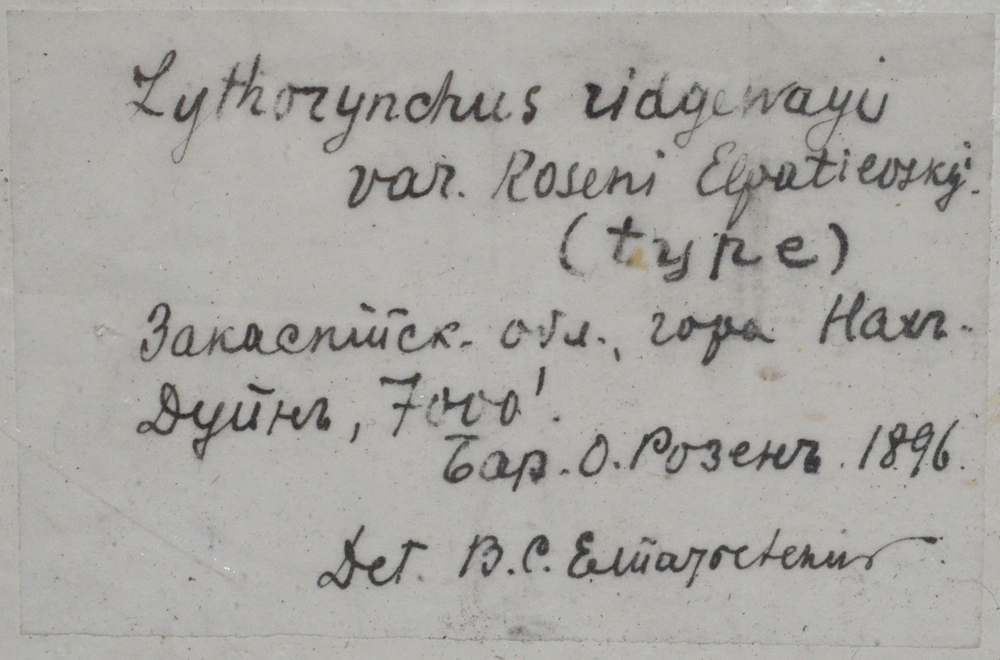 Lythorynchus ridgewayi
var. Roseni Elpatievský.
(type)
Закаспійск. обл., гора Нахъ-
Дуйнъ, 7000'.
Бар. О. Розенъ. 1896.
Det. В. С.